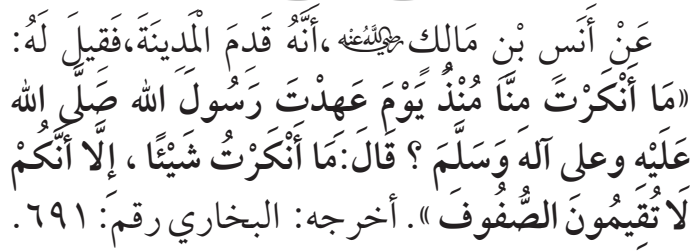 عَنْ أَنَسِ بْنِ مَالِكٍ رضي الله عنه ،أَنَّهُ قَدِمَ الْمَدِينَةَ،فَقِيلَ لَهُ:
«مَا أَنْكَرْتَ مِنَّا مُنْذُ يَوْمَ عَهِدْتَ رَسُولَ الله صَلَّى الله
عَلَيْهِ وعلى آلهَ وَسَلَّمَ ؟ قَالَ:مَا أَنْكَرْتُ شَيْئًا ، إِلَّا أَنَّكُمْ
لَا تُقِيمُونَ الصُّفُوفَ ». أخرجه: البخاري رقم: ٦٩١.